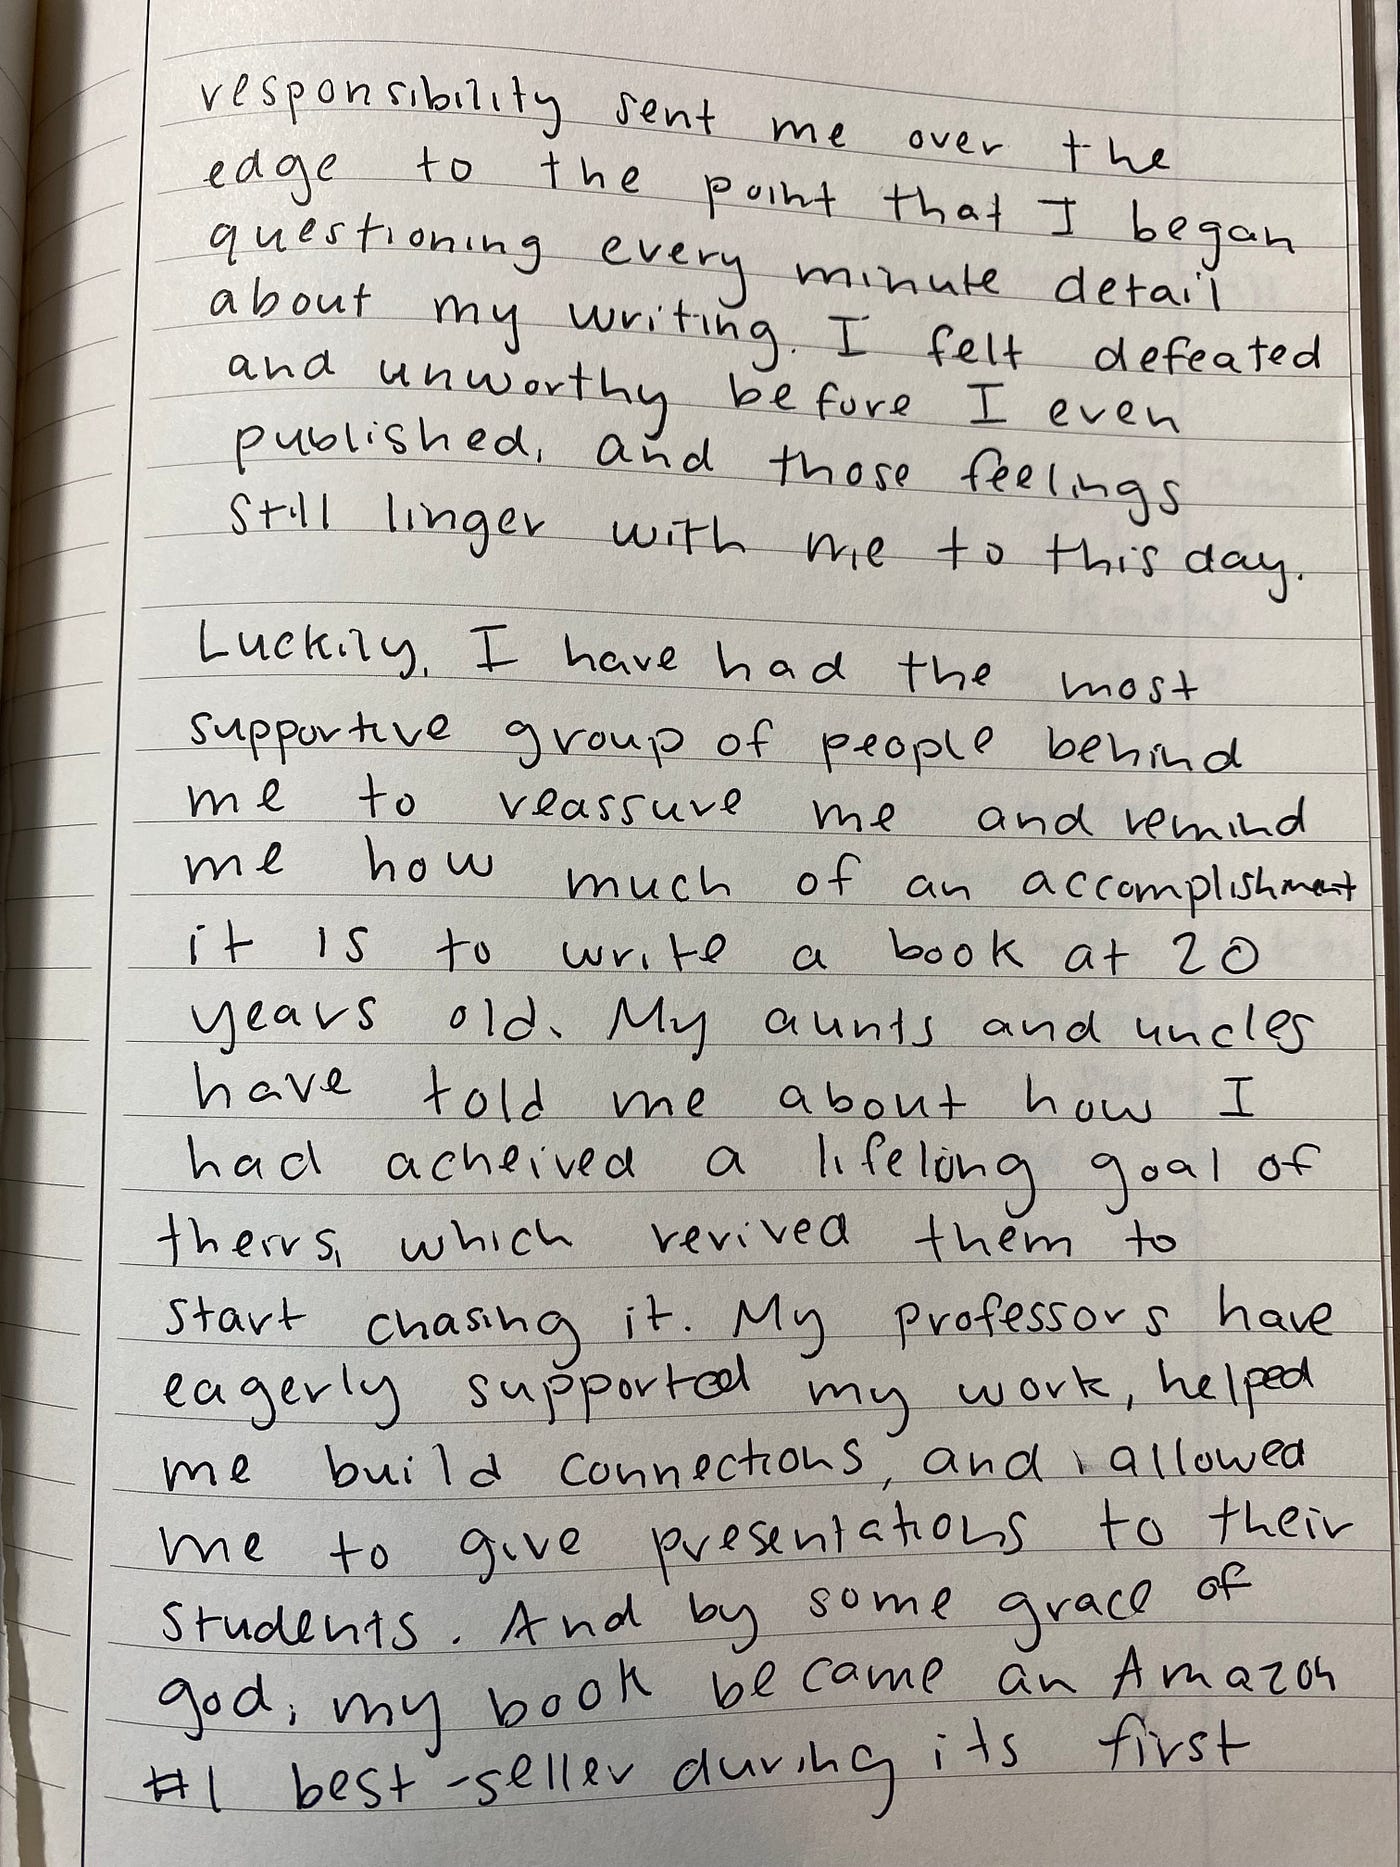 responsibility sent me over the
edge to the point that I began
questioning every minute detail
about my writing. I felt defeated
and unworthy before I even
published, and those feelings
still linger with me to this day.
Luckily, I have had the most
supportive group of people behind
me to reassure me and remind
me how much of an accomplishment
it is to write a book at 20
years old. My aunts and uncles
have told me about how I
had acheived a lifelong goal of
theirs, which revived them to
start chasing it. My professors have
eagerly supported my work, helped
me build connections, and allowed
me to give presentations to their
students. And by some grace of
god, my book became an Amazon
#1 best-seller during its first